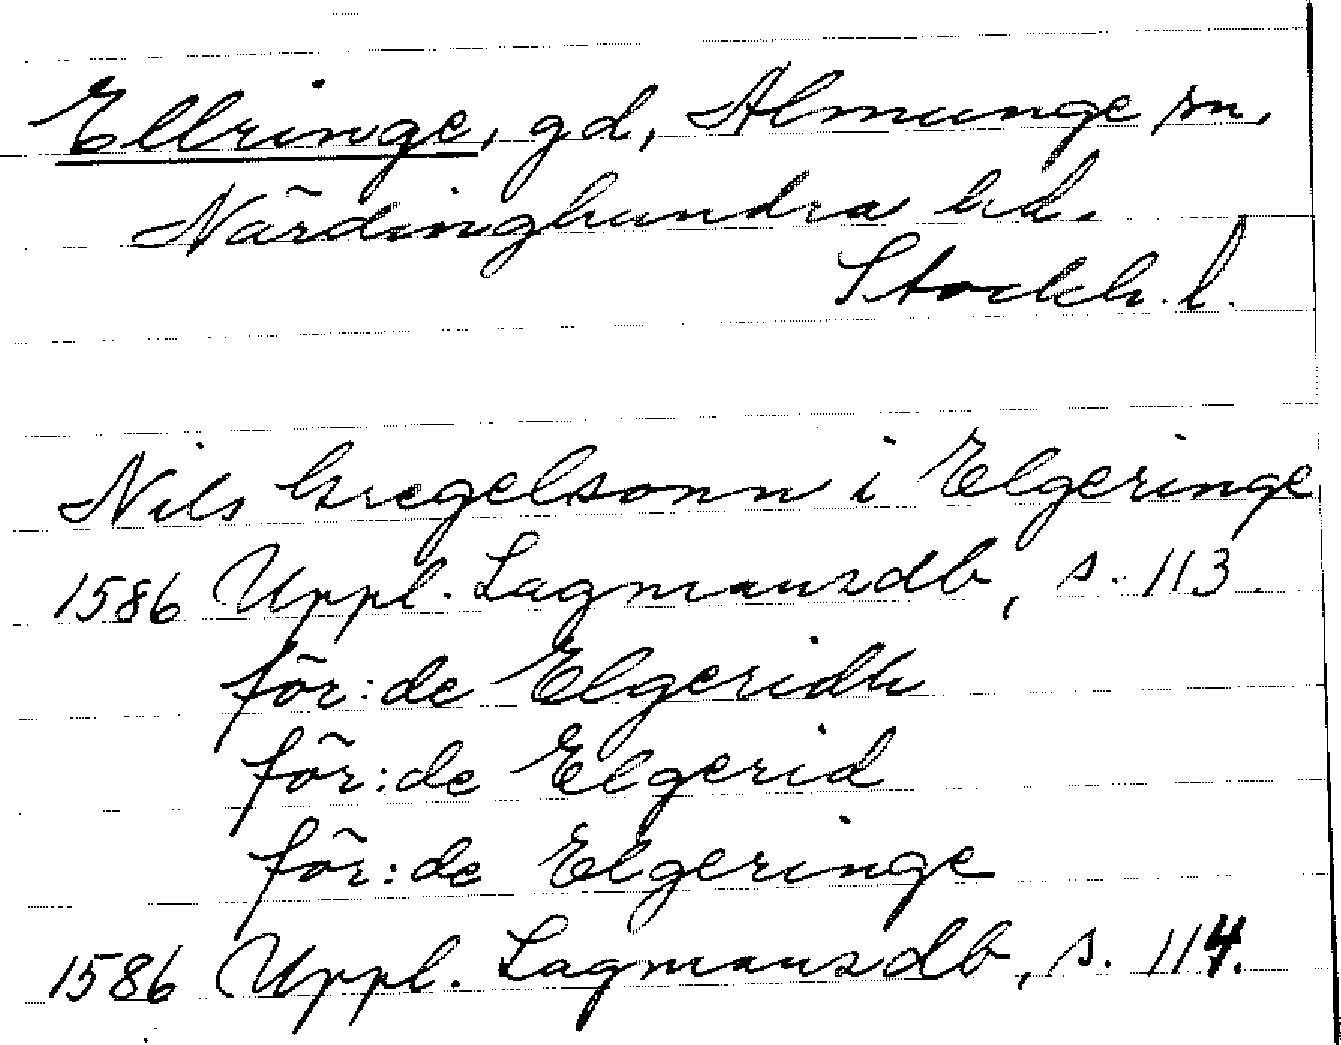 Ellringe, gd, Almunge sn,
Närdinghundra hd.
Stockh. l.
Nils Gregelsonn i Elgeringe
1586 Uppl. Lagmansdb, s. 113.
för: de Elgeridh
för: de Elgerid
för: de Elgeringe
1586 Uppl. Lagmansdb, s. 114.